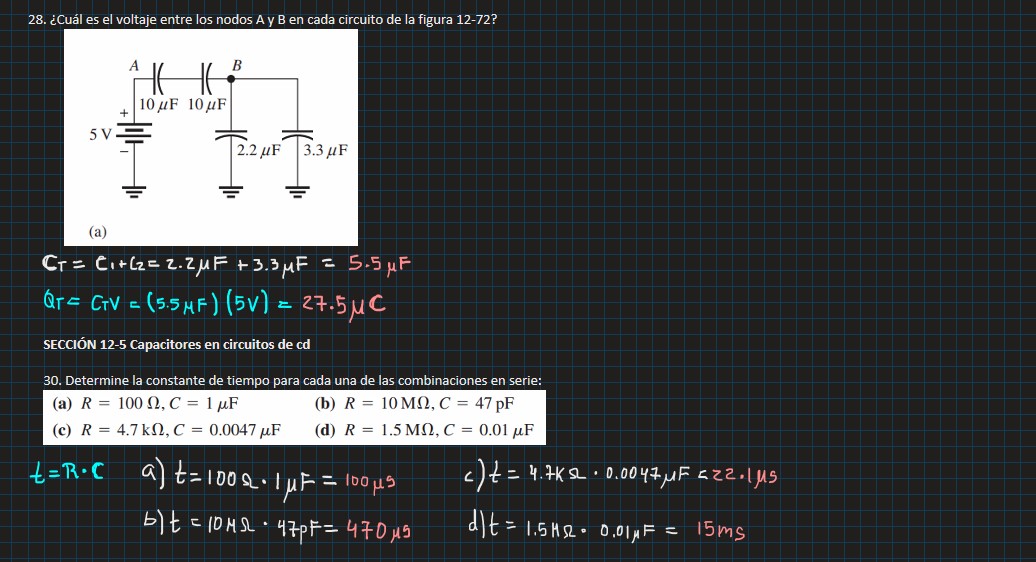 28. ¿Cuál es el voltaje entre los nodos A y B en cada circuito de la figura 12-72?
A B
10 μF 10 μF
+
5 V
2.2 μF 3.3 μF
−
(a)
CT = C1+C2 = 2.2μF + 3.3μF = 5.5μF
QT = CTV = (5.5μF)(5V) = 27.5μC
SECCIÓN 12-5 Capacitores en circuitos de cd
30. Determine la constante de tiempo para cada una de las combinaciones en serie:
(a) R = 100 Ω, C = 1 μF (b) R = 10 MΩ, C = 47 pF
(c) R = 4.7 kΩ, C = 0.0047 μF (d) R = 1.5 MΩ, C = 0.01 μF
t=R·C a) t=100Ω·1μF = 100μs c) t = 4.7KΩ · 0.0047μF = 22.1μs
b) t = 10MΩ · 47pF = 470μs d) t = 1.5MΩ · 0.01μF = 15ms